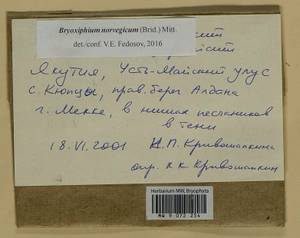 Bryoxiphium norvegicum (Brid.) Mitt.
det./conf. V.E. Fedosov, 2016
Якутия, Усть-Майский улус
с. Кюпцы, прав. берег Алдана
г. Мекке, в нишах песчаников
в тени
18.VI.2001 Н.П. Кривошапкина
опр. К.К. Кривошапкин
Herbarium MW, Bryophyta
MW 9 073 254